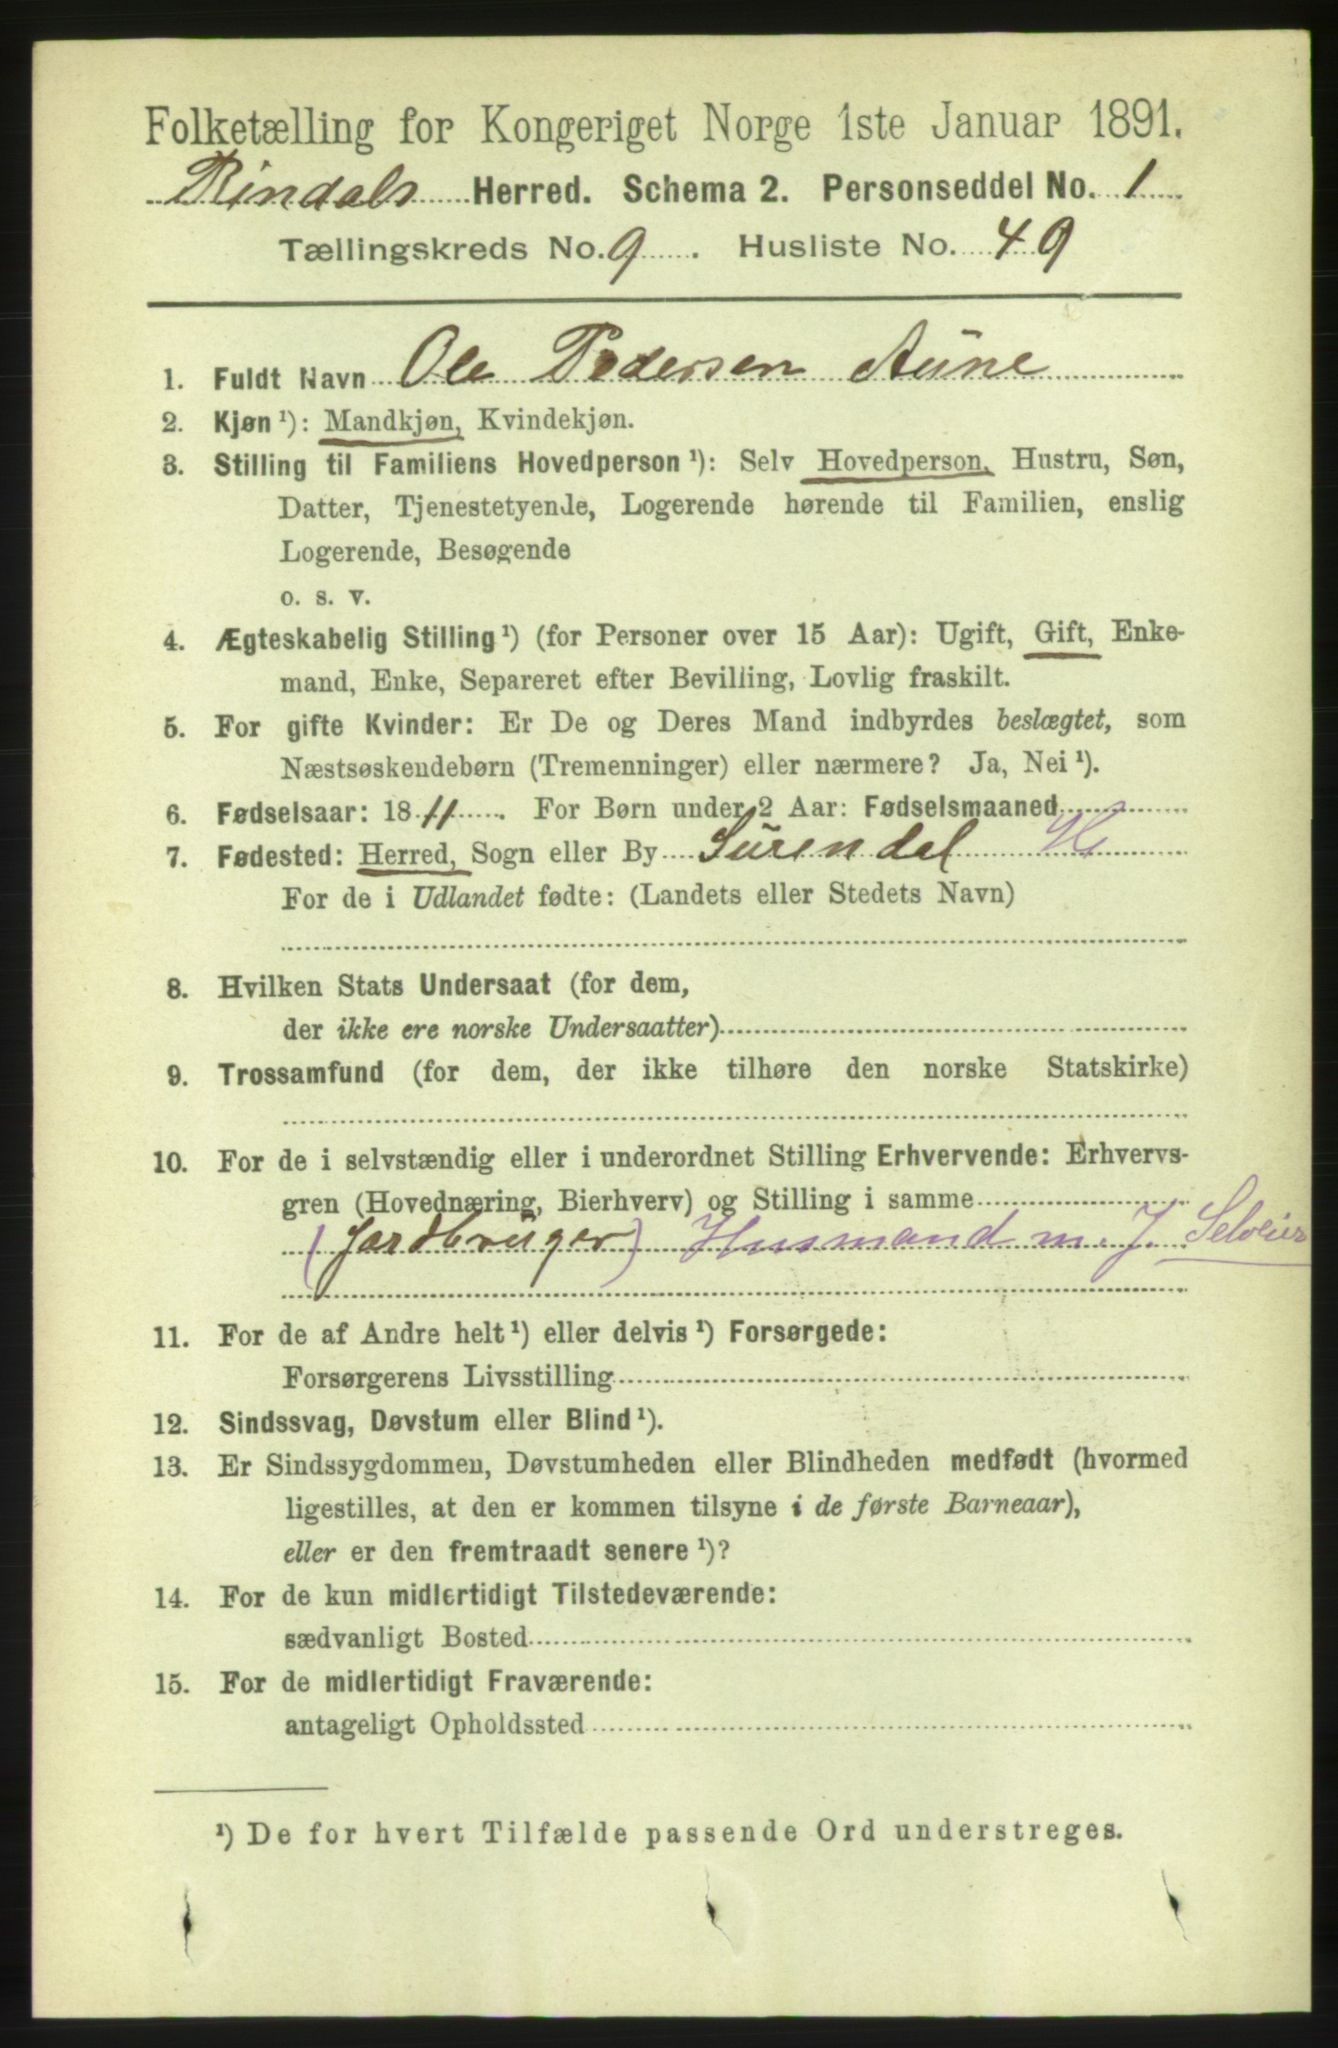 Folketælling for Kongeriget Norge 1ste Januar 1891.
Rindals Herred. Schema 2. Personseddel No. 1
Tællingskreds No. 9. Husliste No. 49
1. Fuldt Navn Ole Pedersen Aune
2. Kjøn ¹): Mandkjøn, Kvindekjøn.
3. Stilling til Familiens Hovedperson ¹): Selv Hovedperson, Hustru, Søn,
Datter, Tjenestetyende, Logerende hørende til Familien, enslig
Logerende, Besøgende
o. s. v.
4. Ægteskabelig Stilling ¹) (for Personer over 15 Aar): Ugift, Gift, Enke-
mand, Enke, Separeret efter Bevilling, Lovlig fraskilt.
5. For gifte Kvinder: Er De og Deres Mand indbyrdes beslægtet, som
Næstsøskendebørn (Tremenninger) eller nærmere? Ja, Nei ¹).
6. Fødselsaar: 1811. For Børn under 2 Aar: Fødselsmaaned
7. Fødested: Herred, Sogn eller By Surendal
For de i Udlandet fødte: (Landets eller Stedets Navn)
8. Hvilken Stats Undersaat (for dem,
der ikke ere norske Undersaatter)
9. Trossamfund (for dem, der ikke tilhøre den norske Statskirke)
10. For de i selvstændig eller i underordnet Stilling Erhvervende: Erhvervs-
gren (Hovednæring, Bierhverv) og Stilling i samme
(Jordbruger) Husmand m. J. Selveier
11. For de af Andre helt ¹) eller delvis ¹) Forsørgede:
Forsørgerens Livsstilling
12. Sindssvag, Døvstum eller Blind ¹).
13. Er Sindssygdommen, Døvstumheden eller Blindheden medfødt (hvormed
ligestilles, at den er kommen tilsyne i de første Barneaar),
eller er den fremtraadt senere ¹)?
14. For de kun midlertidigt Tilstedeværende:
sædvanligt Bosted
15. For de midlertidigt Fraværende:
antageligt Opholdssted
¹) De for hvert Tilfælde passende Ord understreges.